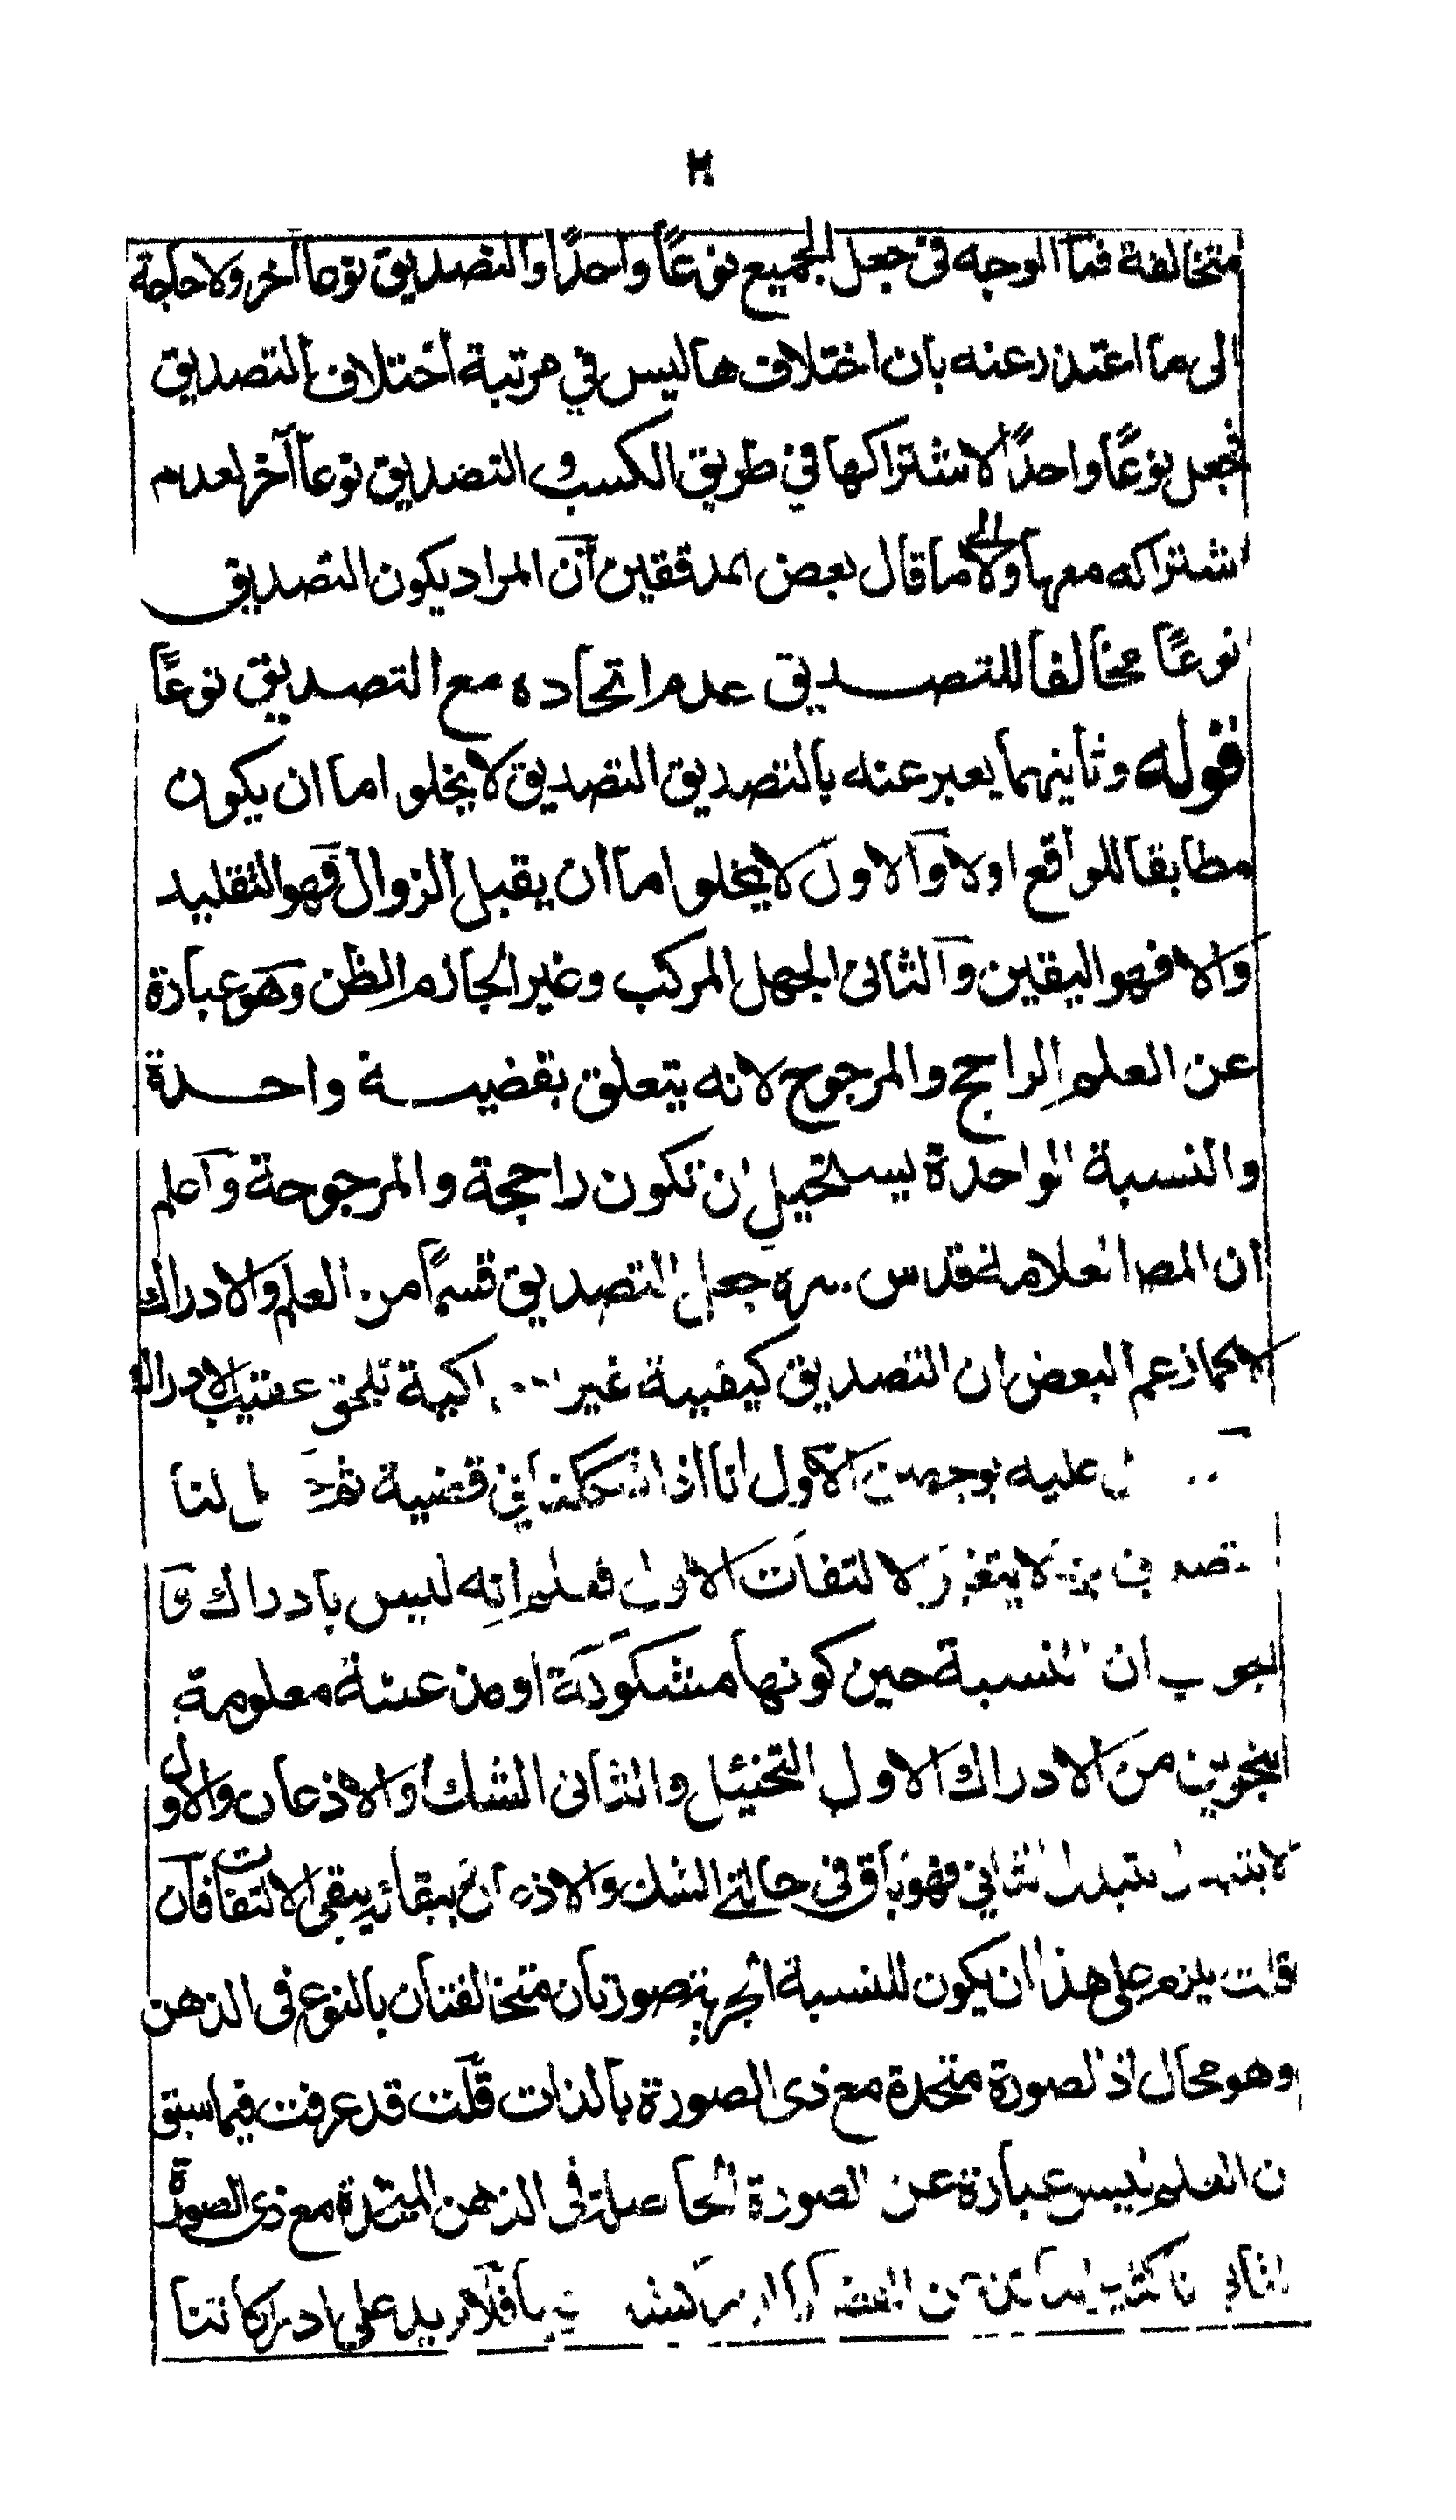 متخالفة فما الوجه فى جعل الجميع نوعًا واحدًا والتصديق نوعا آخر ولا حاجة
الى ما اعتذر عنه بان اختلاف ها ليس في مرتبة اختلاف التصديق
فجعل نوعًا واحدًا لاشتراكها في طريق الكسب و التصديق نوعا آخر لعدم
اشتراكه معها ولا الى ما قال بعض المدققين ان المراد يكون التصديق
نوعًا مخالفا للتصديق عدم اتحاده مع التصديق نوعًا
قوله وثانيهما يعبر عنه بالتصديق التصديق لا يخلو اما ان يكون
مطابقا للواقع اولا والاول لا يخلو اما ان يقبل الزوال فهو التقليد
والا فهو اليقين والثانى الجهل المركب وغير الجازم الظن وهو عبارة
عن العلم الراجح والمرجوح لانه يتعلق بقضية واحدة
والنسبة الواحدة يستحيل ان تكون راجحة والمرجوحة واعلم
ان المص العلامة قدس سره جعل التصديق قسمًا من العلم والادراك
لا كما زعم البعض ان التصديق كيفية غير اكية تلحق عقيب الادراك
عليه بوجهين الاول انا اذا شككنا في قضية ثم لنا
لا يتغير الالتفات الاول فعلم انه ليس بادراك و
لجواب ان النسبة حين كونها مشكوكة او مذعنة معلومة
بنحوين من الادراك الاول التخييل والثانى الشك او الاذعان والاول
لا يتبدل بتبدل الثاني فهو باق فى حالتي الشك والاذعان ببقائه يبقى الالتفات فان
قلت يلزم على هذا ان يكون للنسبة الخبرية صورتان متخالفتان بالنوع فى الذهن
وهو محال اذ الصورة متحدة مع ذى الصورة بالذات قلت قد عرفت فيما سبق
ن العلم ليس عبارة عن الصورة الحاصلة فى الذهن المتحدة مع ذى الصورة
الثاني فلا يزيد على ادراكاتنا